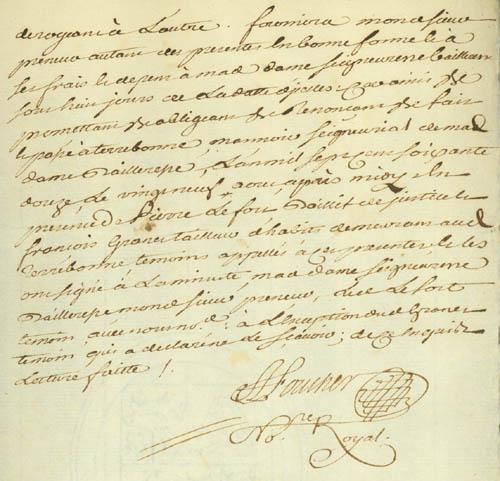 derogeant à Lautre. fournira mondsieur
preneur autant des presentes En bonne forme Et à
ses frais Et depen à mad.e dame Seigneuresse bailleure
sous huit jours de La datte d'ycelles car ainsi &c
promettant &c obligeant &c Renonçant &c fait
Et passé à terrebonne mannoir seigneurial de mad
dame Pailleropé, L'an mil sept cens soixante
douze Le vingt neuf aoust après midy En
presence De Pierre Le fort Baillif de justice Et
francois Graner tailleur d'habits demeurans aud
Terrebonne temoins appellés à ces presentes Et les
ont signé à La minute, mad. dame Seigneuresse
Pailleropé mondsieur preneur, Led. Le fort
temoin avec nous no.re à L'Exception dud. Graner
temoin qui a declaré ne Scavoir, de ce Enquis
Lecture faitte /.
Foucher
No.re Royal.